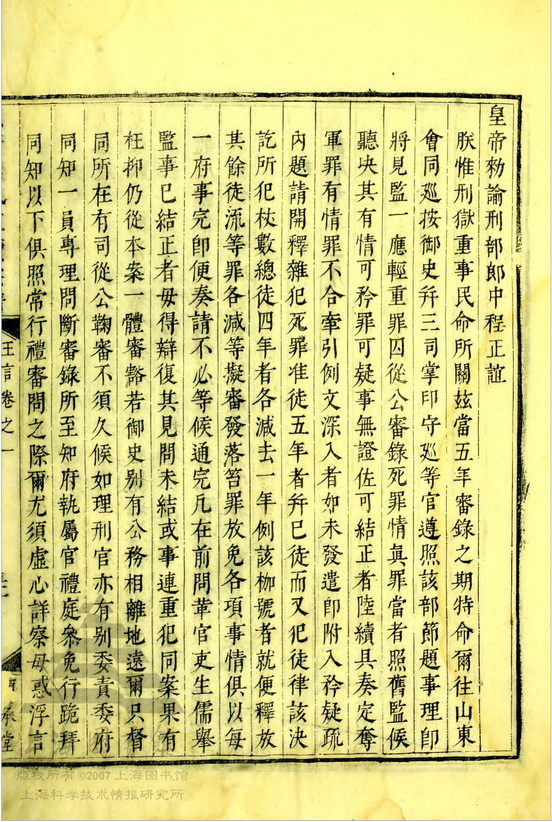 皇帝勑諭刑部郎中程正誼
朕惟刑獄重事民命所關兹當五年審錄之期特命爾往山東
會同廵按御史幷三司掌印守廵等官遵照該部節題事理卽
將見監一應輕重罪囚從公審錄死罪情眞罪當者照舊監候
聽决其有情可矜罪可疑事無證佐可結正者陸續具奏定奪
軍罪有情罪不合牽引例文深入者如未發遣卽附入矜疑疏
內題請開釋雜犯死罪准徒五年者幷已徒而又犯徒律該決
訖所犯杖數總徒四年者各減去一年例該枷號者就便釋放
其餘徒流等罪各減等擬審發落笞罪放免各項事情俱以每
一府事完卽便奏請不必等候通完凡在前問革官吏生儒舉
監事已結正者毋得辯復其見問未結或事連重犯同案果有
枉抑仍從本案一體審豁若御史别有公務相離地遠爾只督
同所在有司從公鞠審不須久候如理刑官亦有别委責委府
同知一員專理問斷審錄所至知府執屬官禮庭叅免行跪拜
同知以下俱照常行禮審問之際爾尤須虛心詳察毋惑浮言
王言卷之一
版权所有©2007上海图书馆
上海科学技术情报研究所